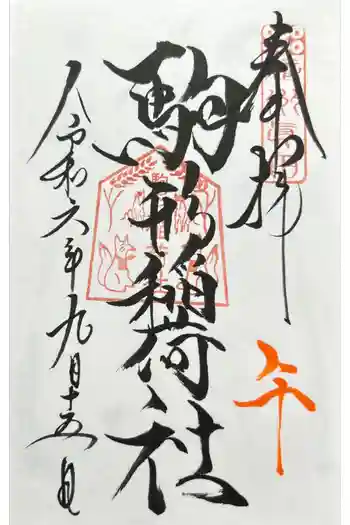 奉拝
午
駒形稲荷社
令和六年九月十五日